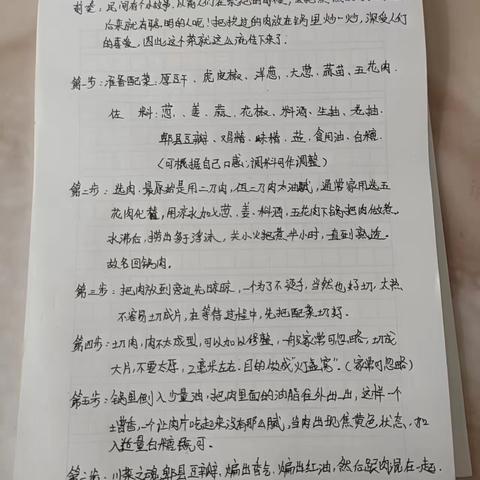 后来就有聪明的人呢！把煮过的肉放在锅里炒一炒，深受人们
的喜爱，因此这个菜就这么流传下来了。
第一步：准备配菜：厚豆干、虎皮椒、洋葱、大葱、蒜苗、五花肉.
佐料：葱、姜、蒜、花椒、料酒、生抽、老抽
郫县豆瓣、鸡精、味精、盐、食用油、白糖.
（可根据自己口感，调料同作调整）
第二步：选肉.最原始是用二刀肉，但二刀肉太油腻，通常家用选五
花肉代替，用凉水加入葱、姜、料酒，五花肉下锅把肉做煮.
水沸后，捞出多于浮沫，关小火把煮半小时，直到熟透.
故名回锅肉.
第三步：把肉放到旁边先晾晾.一个为了不烫手，当然也好切，太热
不容易切成片，在等待过程中，先把配菜切好.
第四步：切肉，肉不太成型，可以加以修整，一般家常可忽略，切成
大片，不要太厚，2毫米左右.目的做成"灯盏窝".（家常可忽略）
第五步：锅里倒入少量油，把肉里面的油脂往外出一出，这样一个
增香，一个让肉片吃起来没有那么腻，当肉出现焦黄色状态，加
入适量白糖既可.
川菜之魂郫县豆瓣，煸出香气，煸出红油，然后跟肉混在一起.